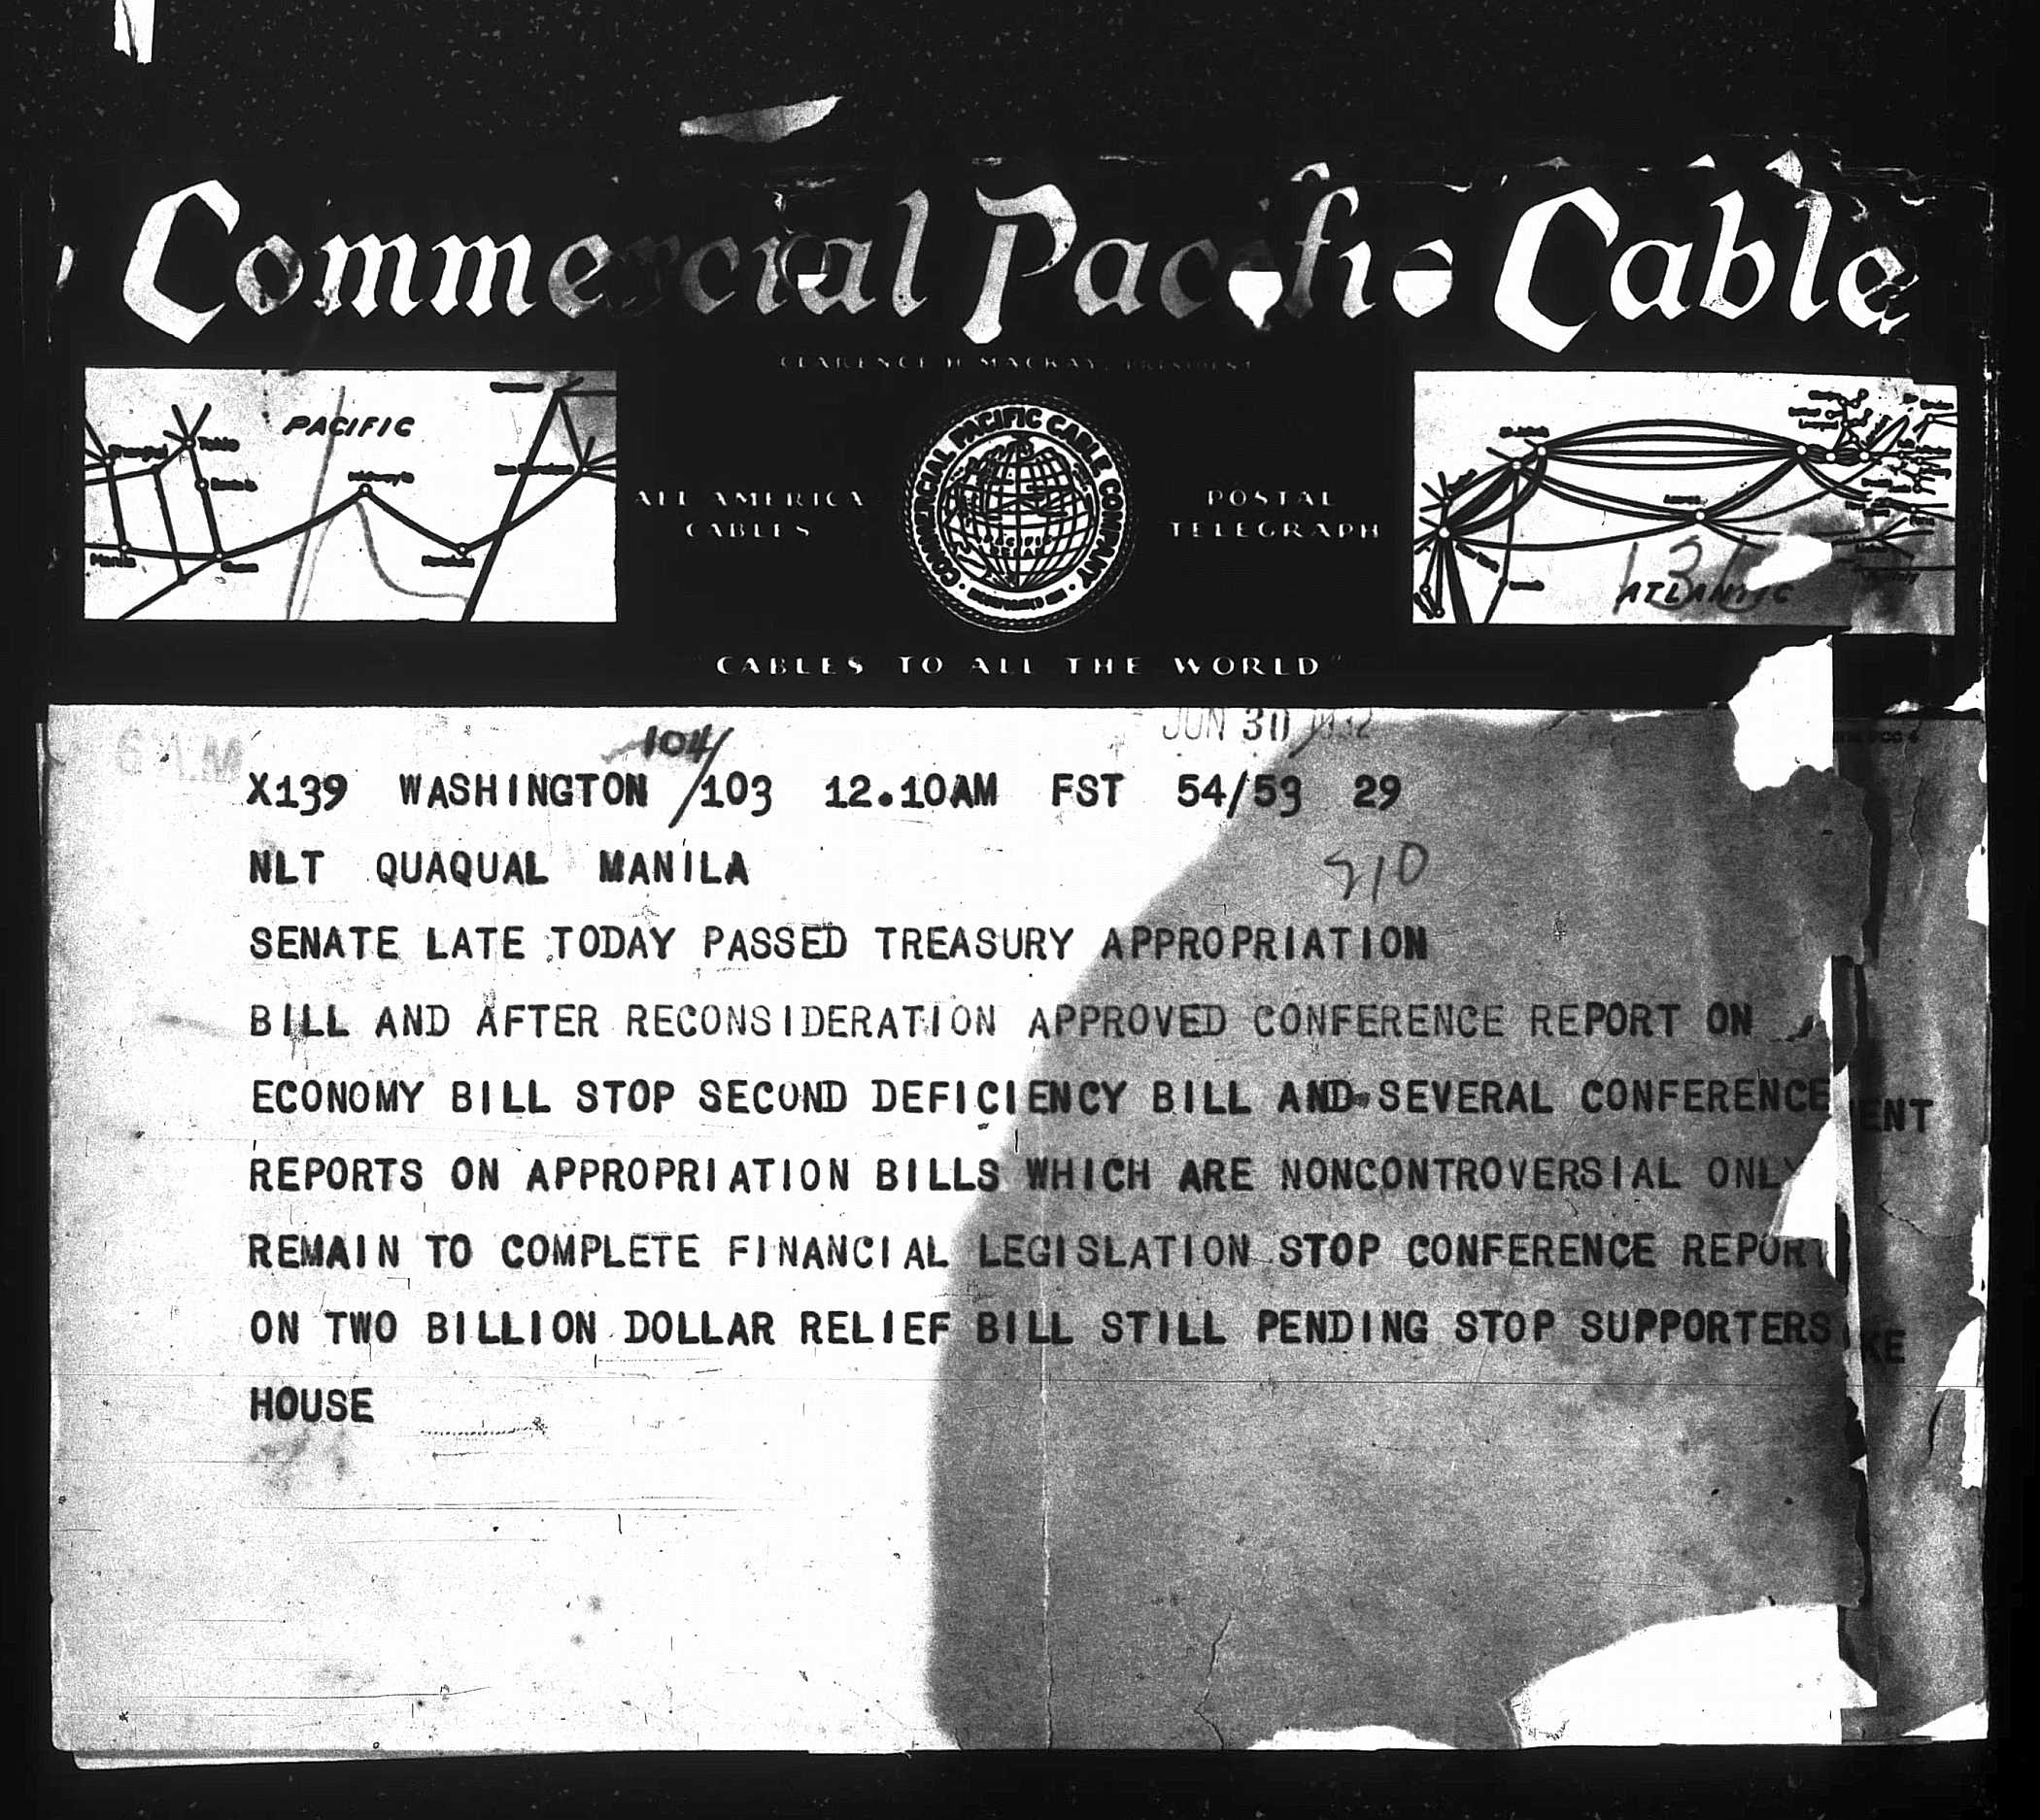 Commercial Pacific Cable
CLARENCE H. MACKAY, PRESIDENT
PACIFIC
Shanghai
Tokio
Midway Is
San Francisco
Manila
Guam
Honolulu
ALL AMERICA
CABLES
COMMERCIAL PACIFIC CABLE COMPANY
POSTAL
TELEGRAPH
Azores
ATLANTIC
"CABLES TO ALL THE WORLD"
6 A.M
JUN 30 1932
104/
X139 WASHINGTON /103 12.10AM FST 54/53 29
NLT QUAQUAL MANILA
910
SENATE LATE TODAY PASSED TREASURY APPROPRIATION
BILL AND AFTER RECONSIDERATION APPROVED CONFERENCE REPORT ON
ECONOMY BILL STOP SECOND DEFICIENCY BILL AND SEVERAL CONFERENCE
ENT
REPORTS ON APPROPRIATION BILLS WHICH ARE NONCONTROVERSIAL ONLY
REMAIN TO COMPLETE FINANCIAL LEGISLATION STOP CONFERENCE REPORT
ON TWO BILLION DOLLAR RELIEF BILL STILL PENDING STOP SUPPORTERS
KE
HOUSE